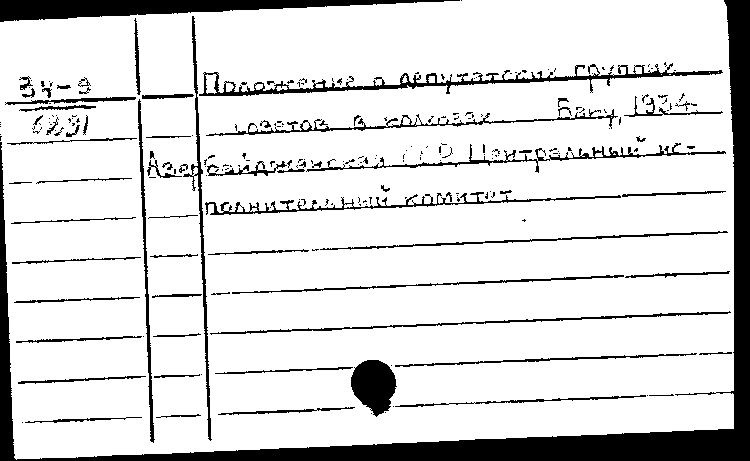 34-9
6231
Положение о депутатских группах
советов в колхозах Баку, 1934.
Азербайджанская ССР. Центральный ис-
полнительный комитет